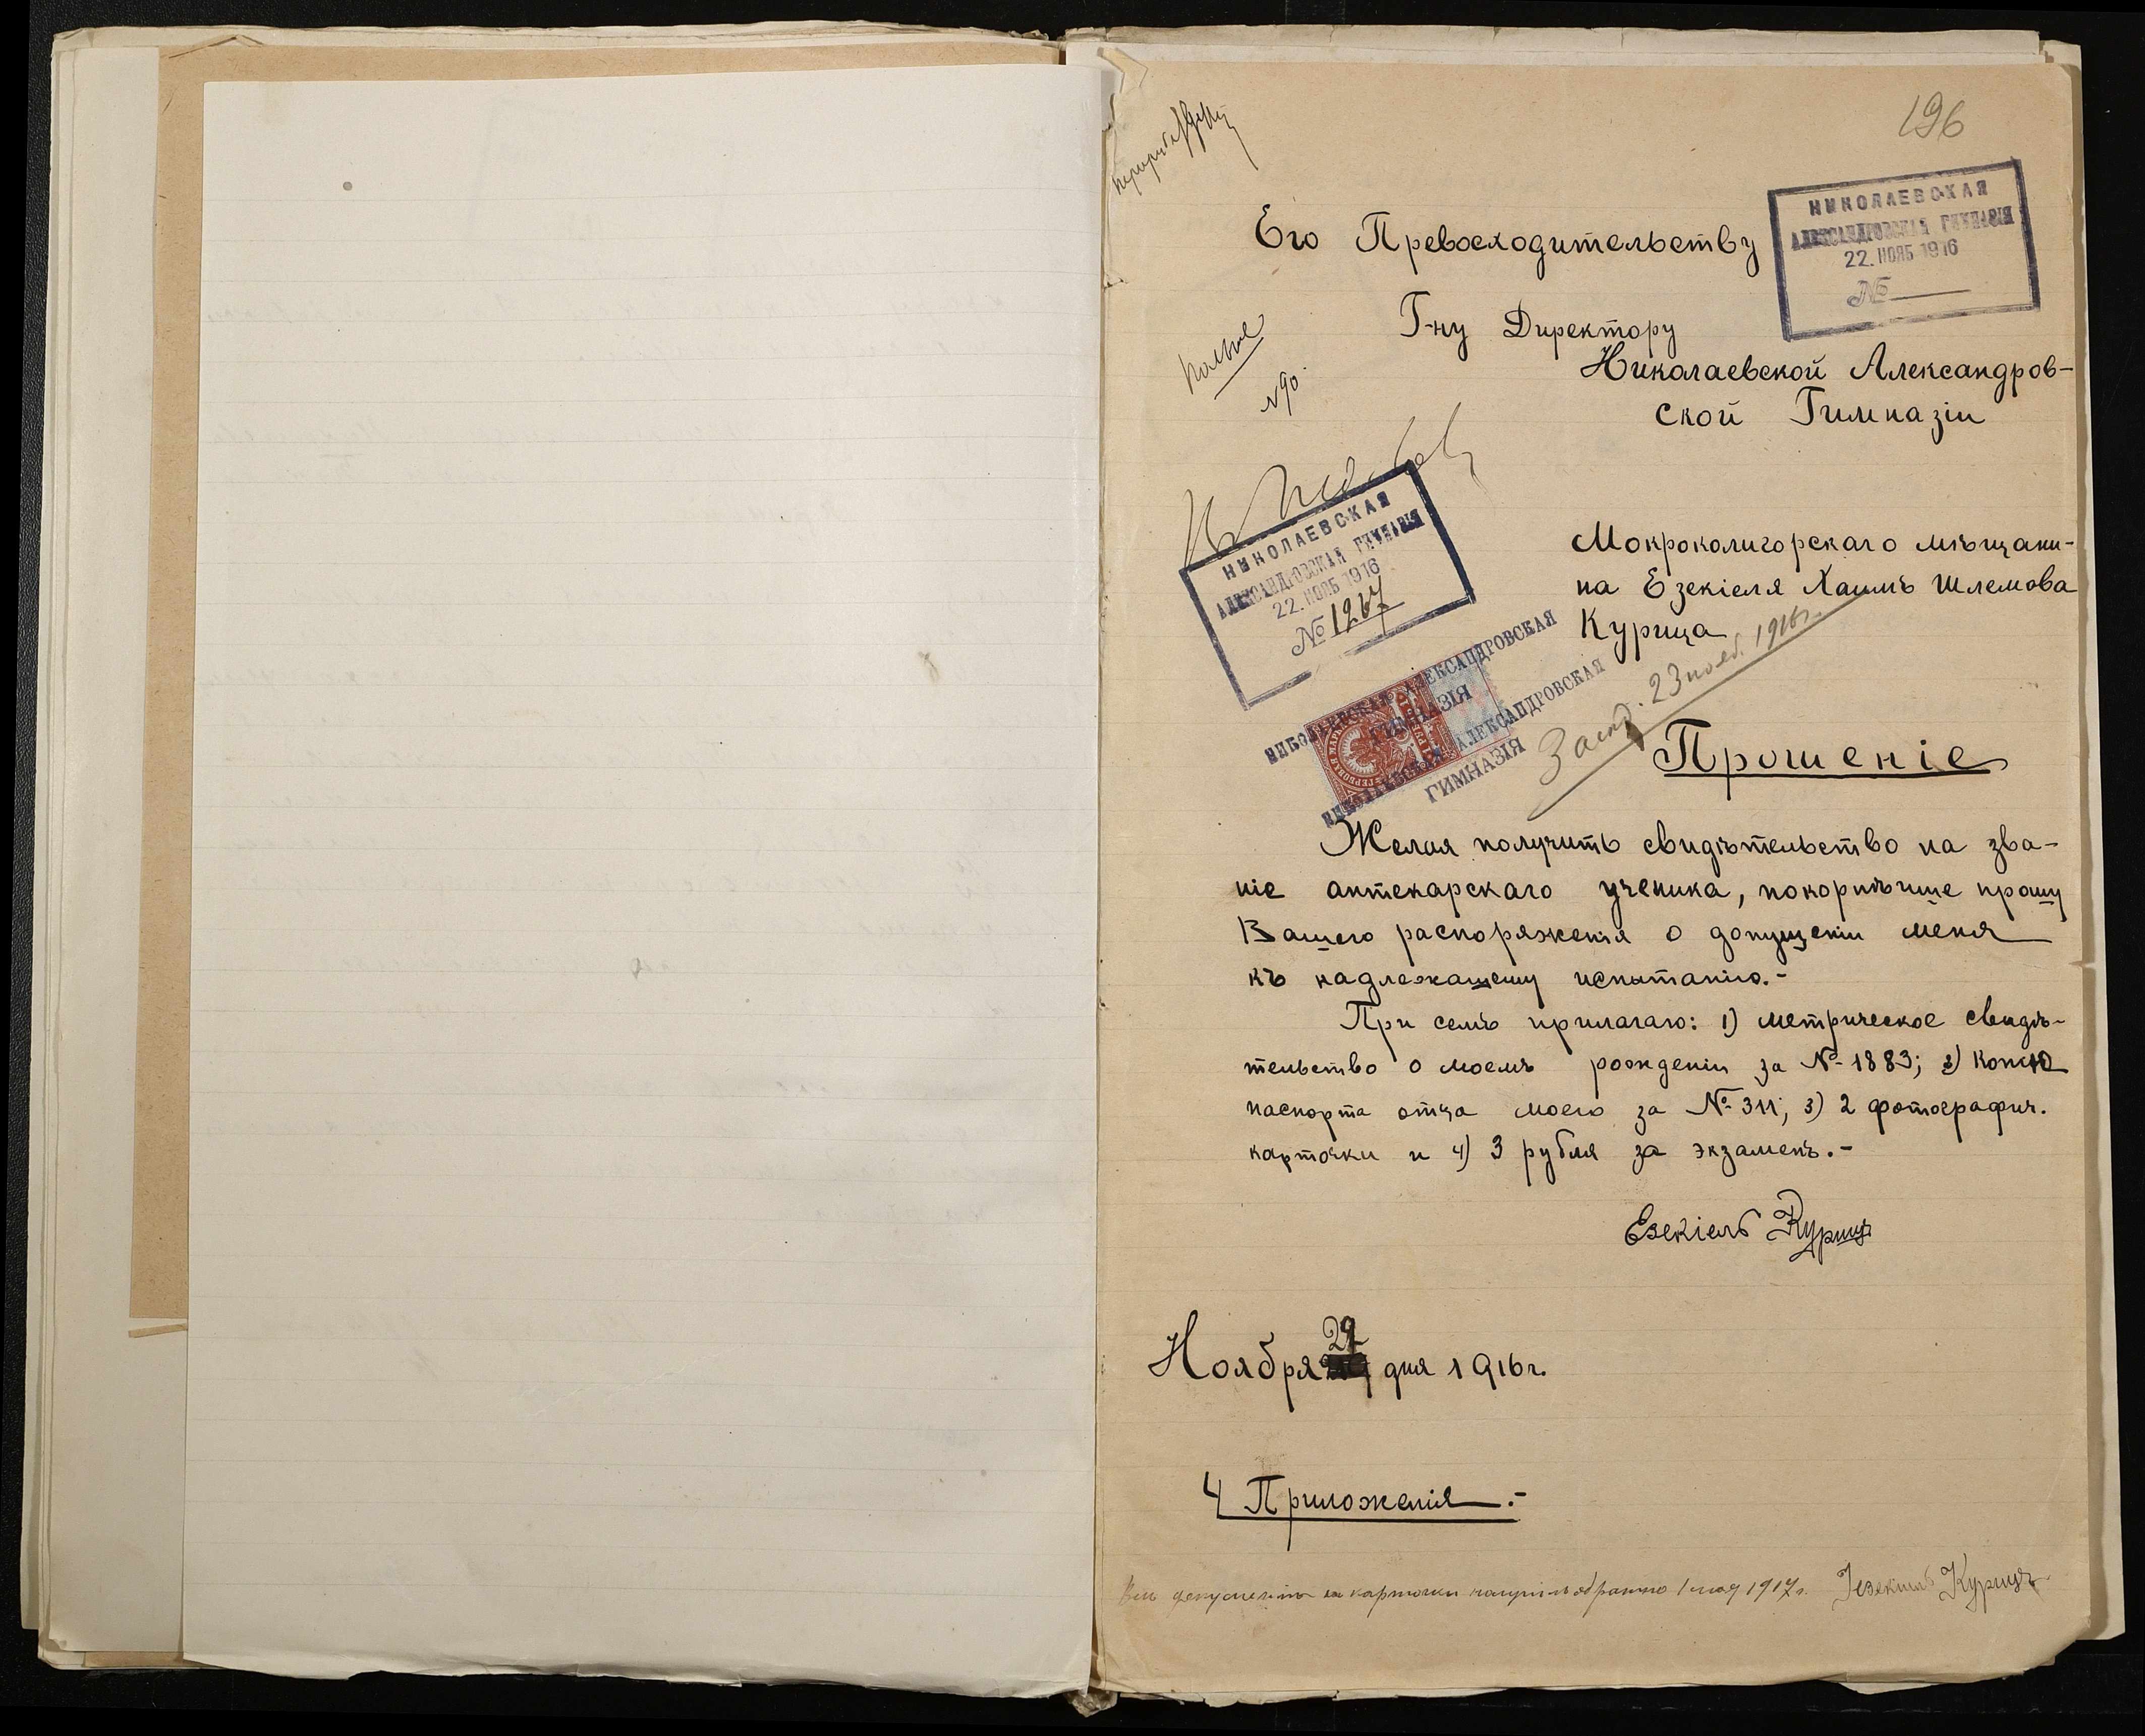 196
Его Превосходительству
НИКОЛАЕВСКАЯ
АЛЕКСАНДРОВСКАЯ ГИМНАЗІЯ
22. НОЯБ 1916
№
Г-ну Директору
Николаевской Александров-
ской Гимназіи
НИКОЛАЕВСКАЯ
АЛЕКСАНДРОВСКАЯ ГИМНАЗІЯ
22. НОЯБ 1916
№ 1267
Мокрокалигорскаго мѣщани-
на Езекіеля Хаимъ Шлемова
Курица
НИКОЛАЕВСКАЯ АЛЕКСАНДРОВСКАЯ
ГИМНАЗІЯ
НИКОЛАЕВСКАЯ АЛЕКСАНДРОВСКАЯ
ГИМНАЗІЯ
23 нояб. 1916 г.
Прошеніе
Желая получить свидѣтельство на зва-
ніе аптекарскаго ученика, покорнѣйше прошу
Вашего распоряженія о допущеніи меня
къ надлежащему испытанію.-
При семъ прилагаю: 1) метрическое свидѣ-
тельство о моемъ рожденіи за №-1883; 2) копію
паспорта отца моего за № 311; 3) 2 фотографич.
карточки и 4) 3 рубля за экзаменъ.-
Езекіель Курицъ
Ноября 22 дня 1916 г.
4 Приложенія.-
документы карточки получилъ обратно 1 мая 1917 г. Іезекіиль Курицъ